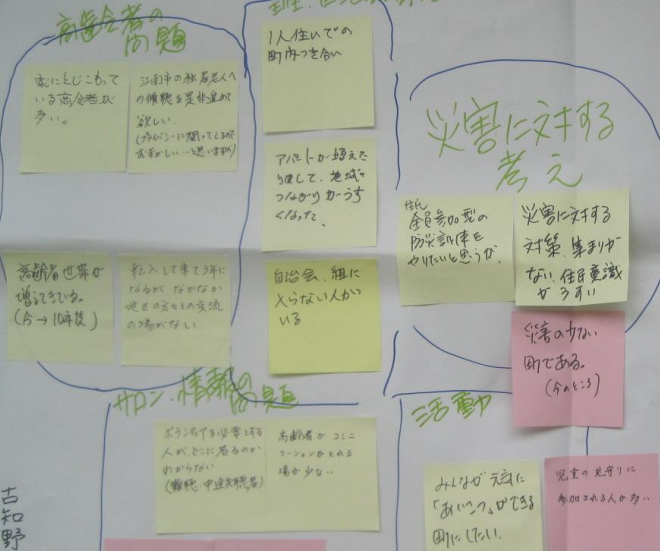 高齢者の
問題
家にとじこもって
いる高令者が
多い。
江南市の独居老人へ
の傾聴を是非進めて
欲しい
高齢者世帯が
増えてきている。
(今→10年後)
転入して来て3年に
なるが、なかなか
地区の方々との交流
の場がない
1人住いでの
町内つき合い
アパートが増えた
りして、地域の
つながりがうすく
なった。
自治会、組に
入らない人がいる
災害に対する
考え
住民
全員参加型の
防災訓練を
やりたいと思うが、
災害に対する
対策、集まりが
ない、住民意識
がうすい
災害の少ない
町である。
(今のところ)
サロン・情報の
問題
ボランティアを必要とする
人がどこに居るのか
わからない
(難聴・中途失聴者)
高齢者がコミニ
ケーションがとれる
場が少ない
活動
みんなが元気に
「あいさつ」ができる
町にしたい。
児童の見守りに
参加される人が多い
古知野